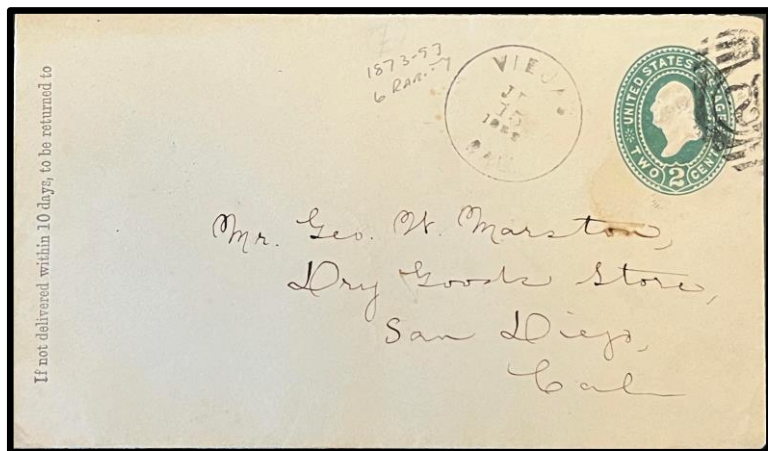 If not delivered within 10 days, to be returned to
1873-93
6 RARITY
VIEJAS
15
188
CAL.
UNITED STATES POSTAGE
TWO 2 CENTS
Mr. Geo. W. Marston,
Dry Goods Store,
San Diego,
Cal